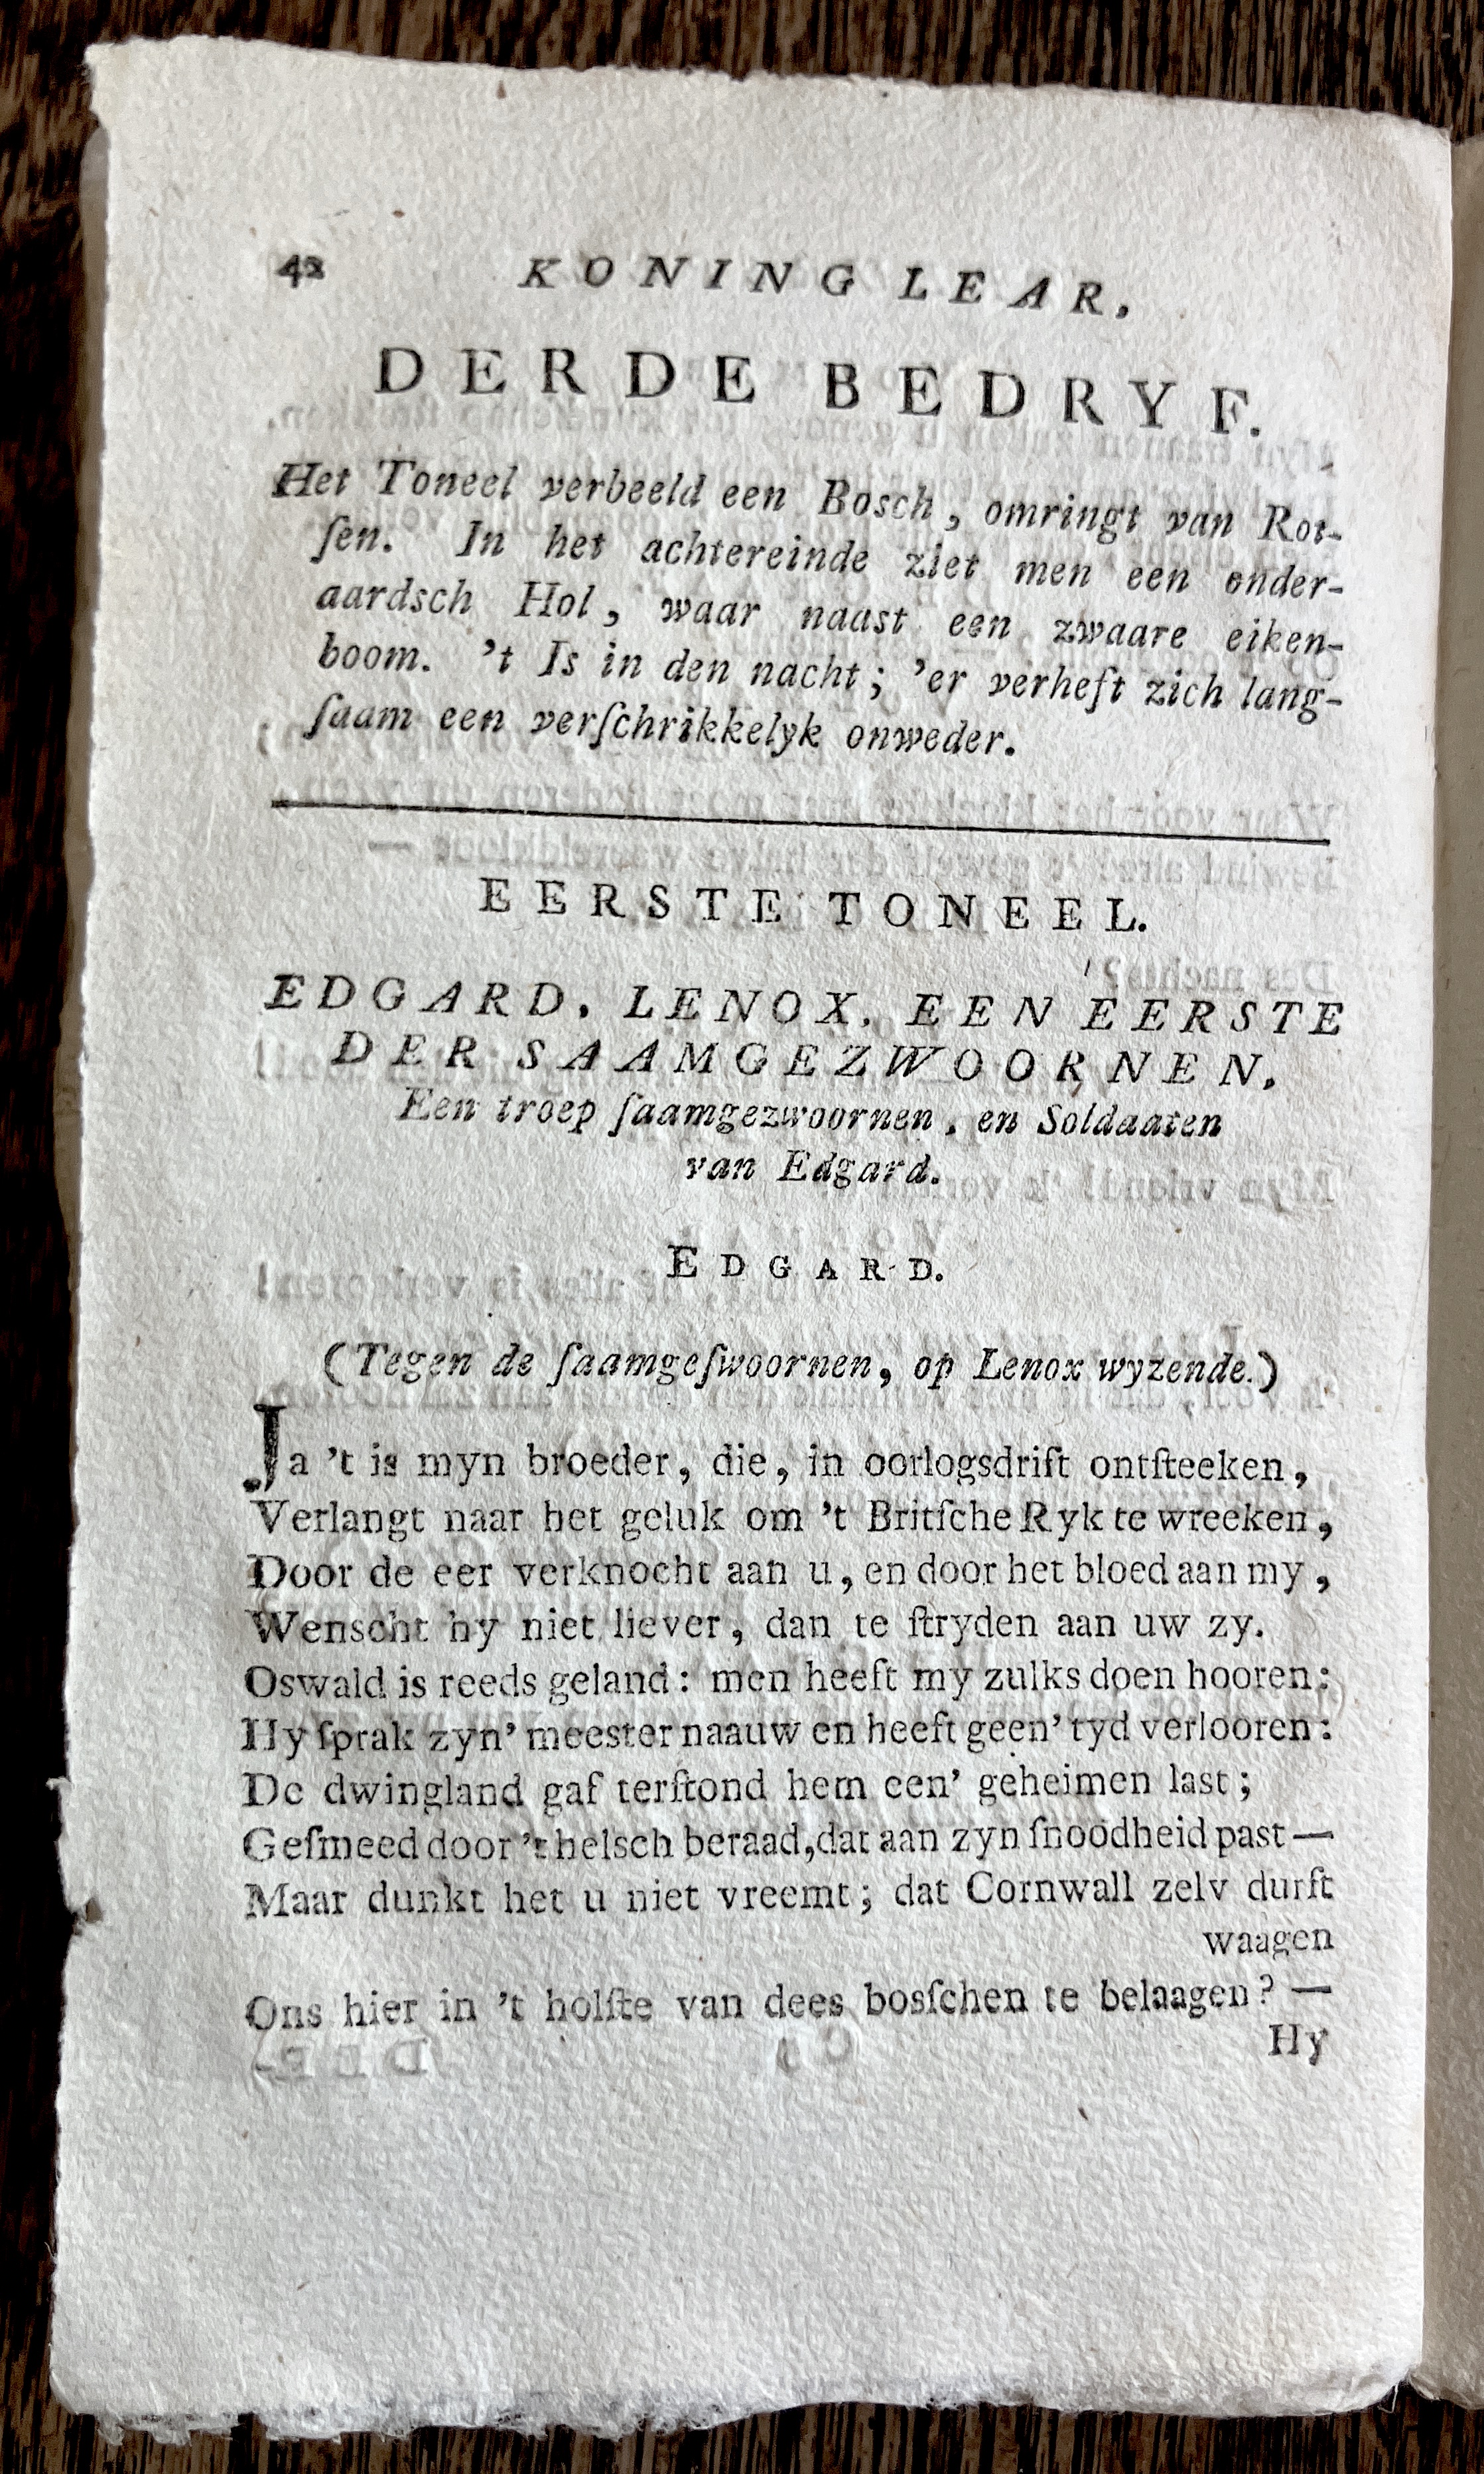 42 KONING LEAR,
DERDE BEDRYF.
Het Toneel verbeeld een Bosch, omringt van Rot-
ſen. In het achtereinde ziet men een onder-
aardsch Hol, waar naast een zwaare eiken-
boom. 't Is in den nacht; 'er verheft zich lang-
ſaam een verſchrikkelyk onweder.
EERSTE TONEEL.
EDGARD, LENOX, EEN EERSTE
DER SAAMGEZWOORNEN,
Een troep ſaamgezwoornen, en Soldaaten
van Edgard.
EDGARD.
(Tegen de ſaamgeſwoornen, op Lenox wyzende.)
Ja 't is myn broeder, die, in oorlogsdrift ontſteeken,
Verlangt naar het geluk om 't Britſche Ryk te wreeken,
Door de eer verknocht aan u, en door het bloed aan my,
Wenscht hy niet liever, dan te ſtryden aan uw zy.
Oswald is reeds geland: men heeft my zulks doen hooren:
Hy ſprak zyn' meester naauw en heeft geen' tyd verlooren:
De dwingland gaf terſtond hem een' geheimen last;
Geſmeed door 't helsch beraad, dat aan zyn ſnoodheid past—
Maar dunkt het u niet vreemt; dat Cornwall zelv durft
waagen
Ons hier in 't holſte van dees bosſchen te belaagen? —
Hy